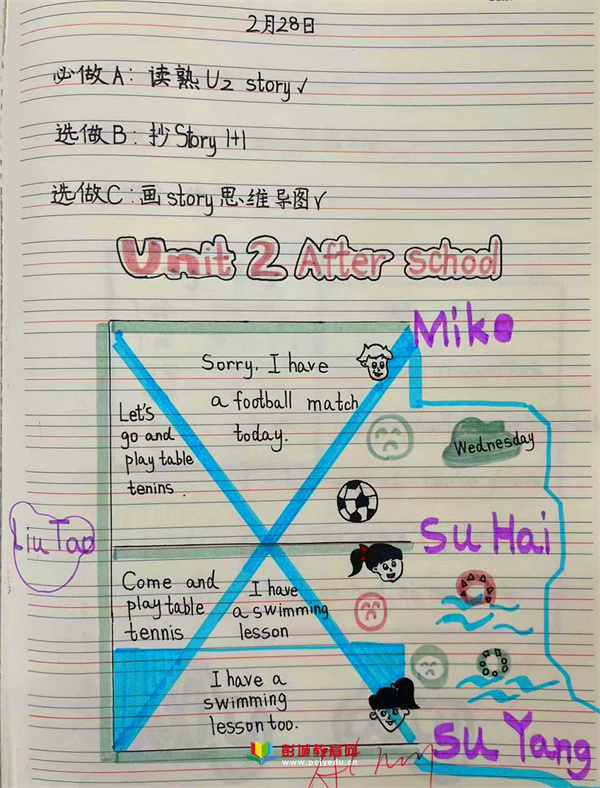 2月28日
必做A：读熟U2 story✓
选做B：抄Story 1+1
选做C：画story思维导图✓
Unit 2 After school
Mike
Sorry, I have
a football match
today.
Let's
go and
play table
tenins.
Wednesday
Liu Tao
Su Hai
Come and
play table
tennis
I have
a swimming
lesson
I have a
swimming
lesson too.
Su Yang
彭城教育网
www.pcjyedu.cn